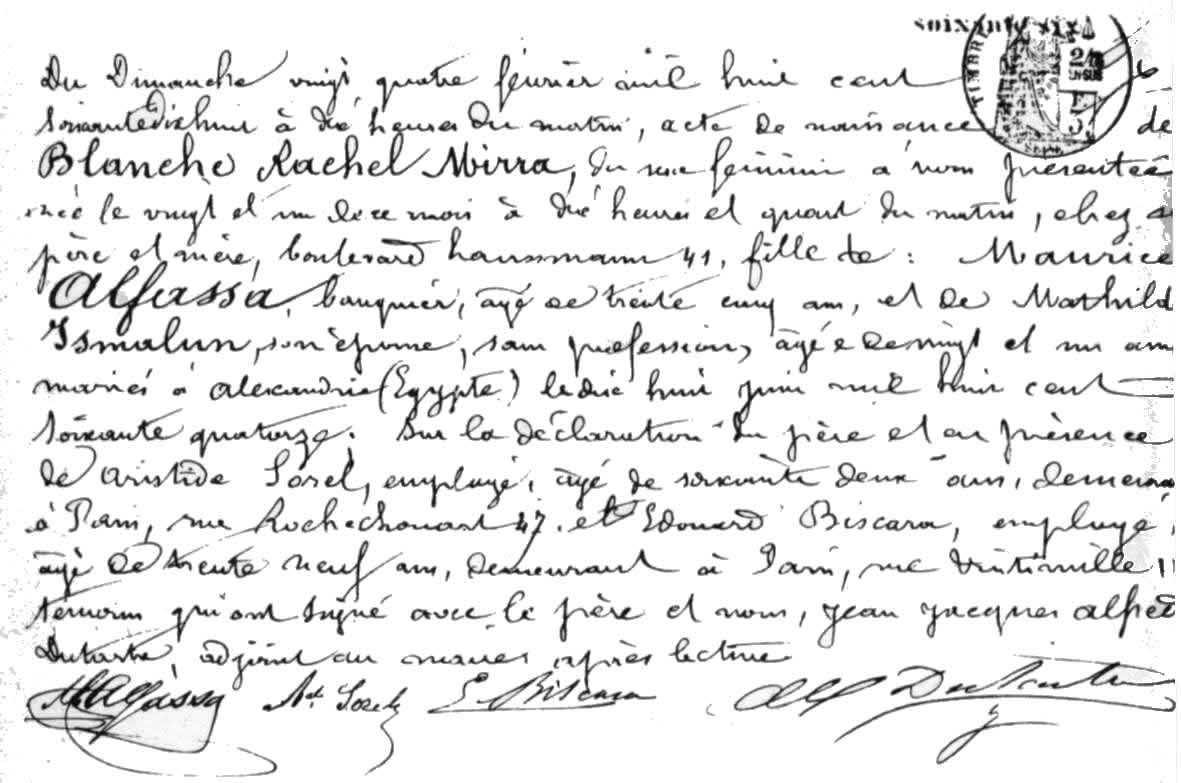 soixante six
TIMBRE
Du Dimanche vingt quatre février mil huit cent
soixante dix huit à dix heures du matin, acte de naissance de
Blanche Rachel Mirra, du sexe féminin à nous présentée
née le vingt et un de ce mois à dix heures et quart du matin, chez s
père et mère, boulevard haussmann 41, fille de : Maurice
Alfassa, banquier, âgé de trente cinq ans, et de Mathild
Ismalun, son épouse, sans profession, âgée de vingt et un ans
mariés à alexandrie (Egypte) le dix huit juin mil huit cent
soixante quatorze. Sur la déclaration du père et en présence
de Aristide Sorel, employé, âgé de soixante deux ans, demeura
à Paris, rue Rochechouart 47. et Edouard Biscara, employé,
âgé de trente neuf ans, demeurant à Paris, rue Vintimille 11
témoins qui ont signé avec le père et nous, Jean Jacques alfred
Dutartre, adjoint au maire, après lecture
MAlfassa Ad. Sorel E. Biscara Alf Dutartre